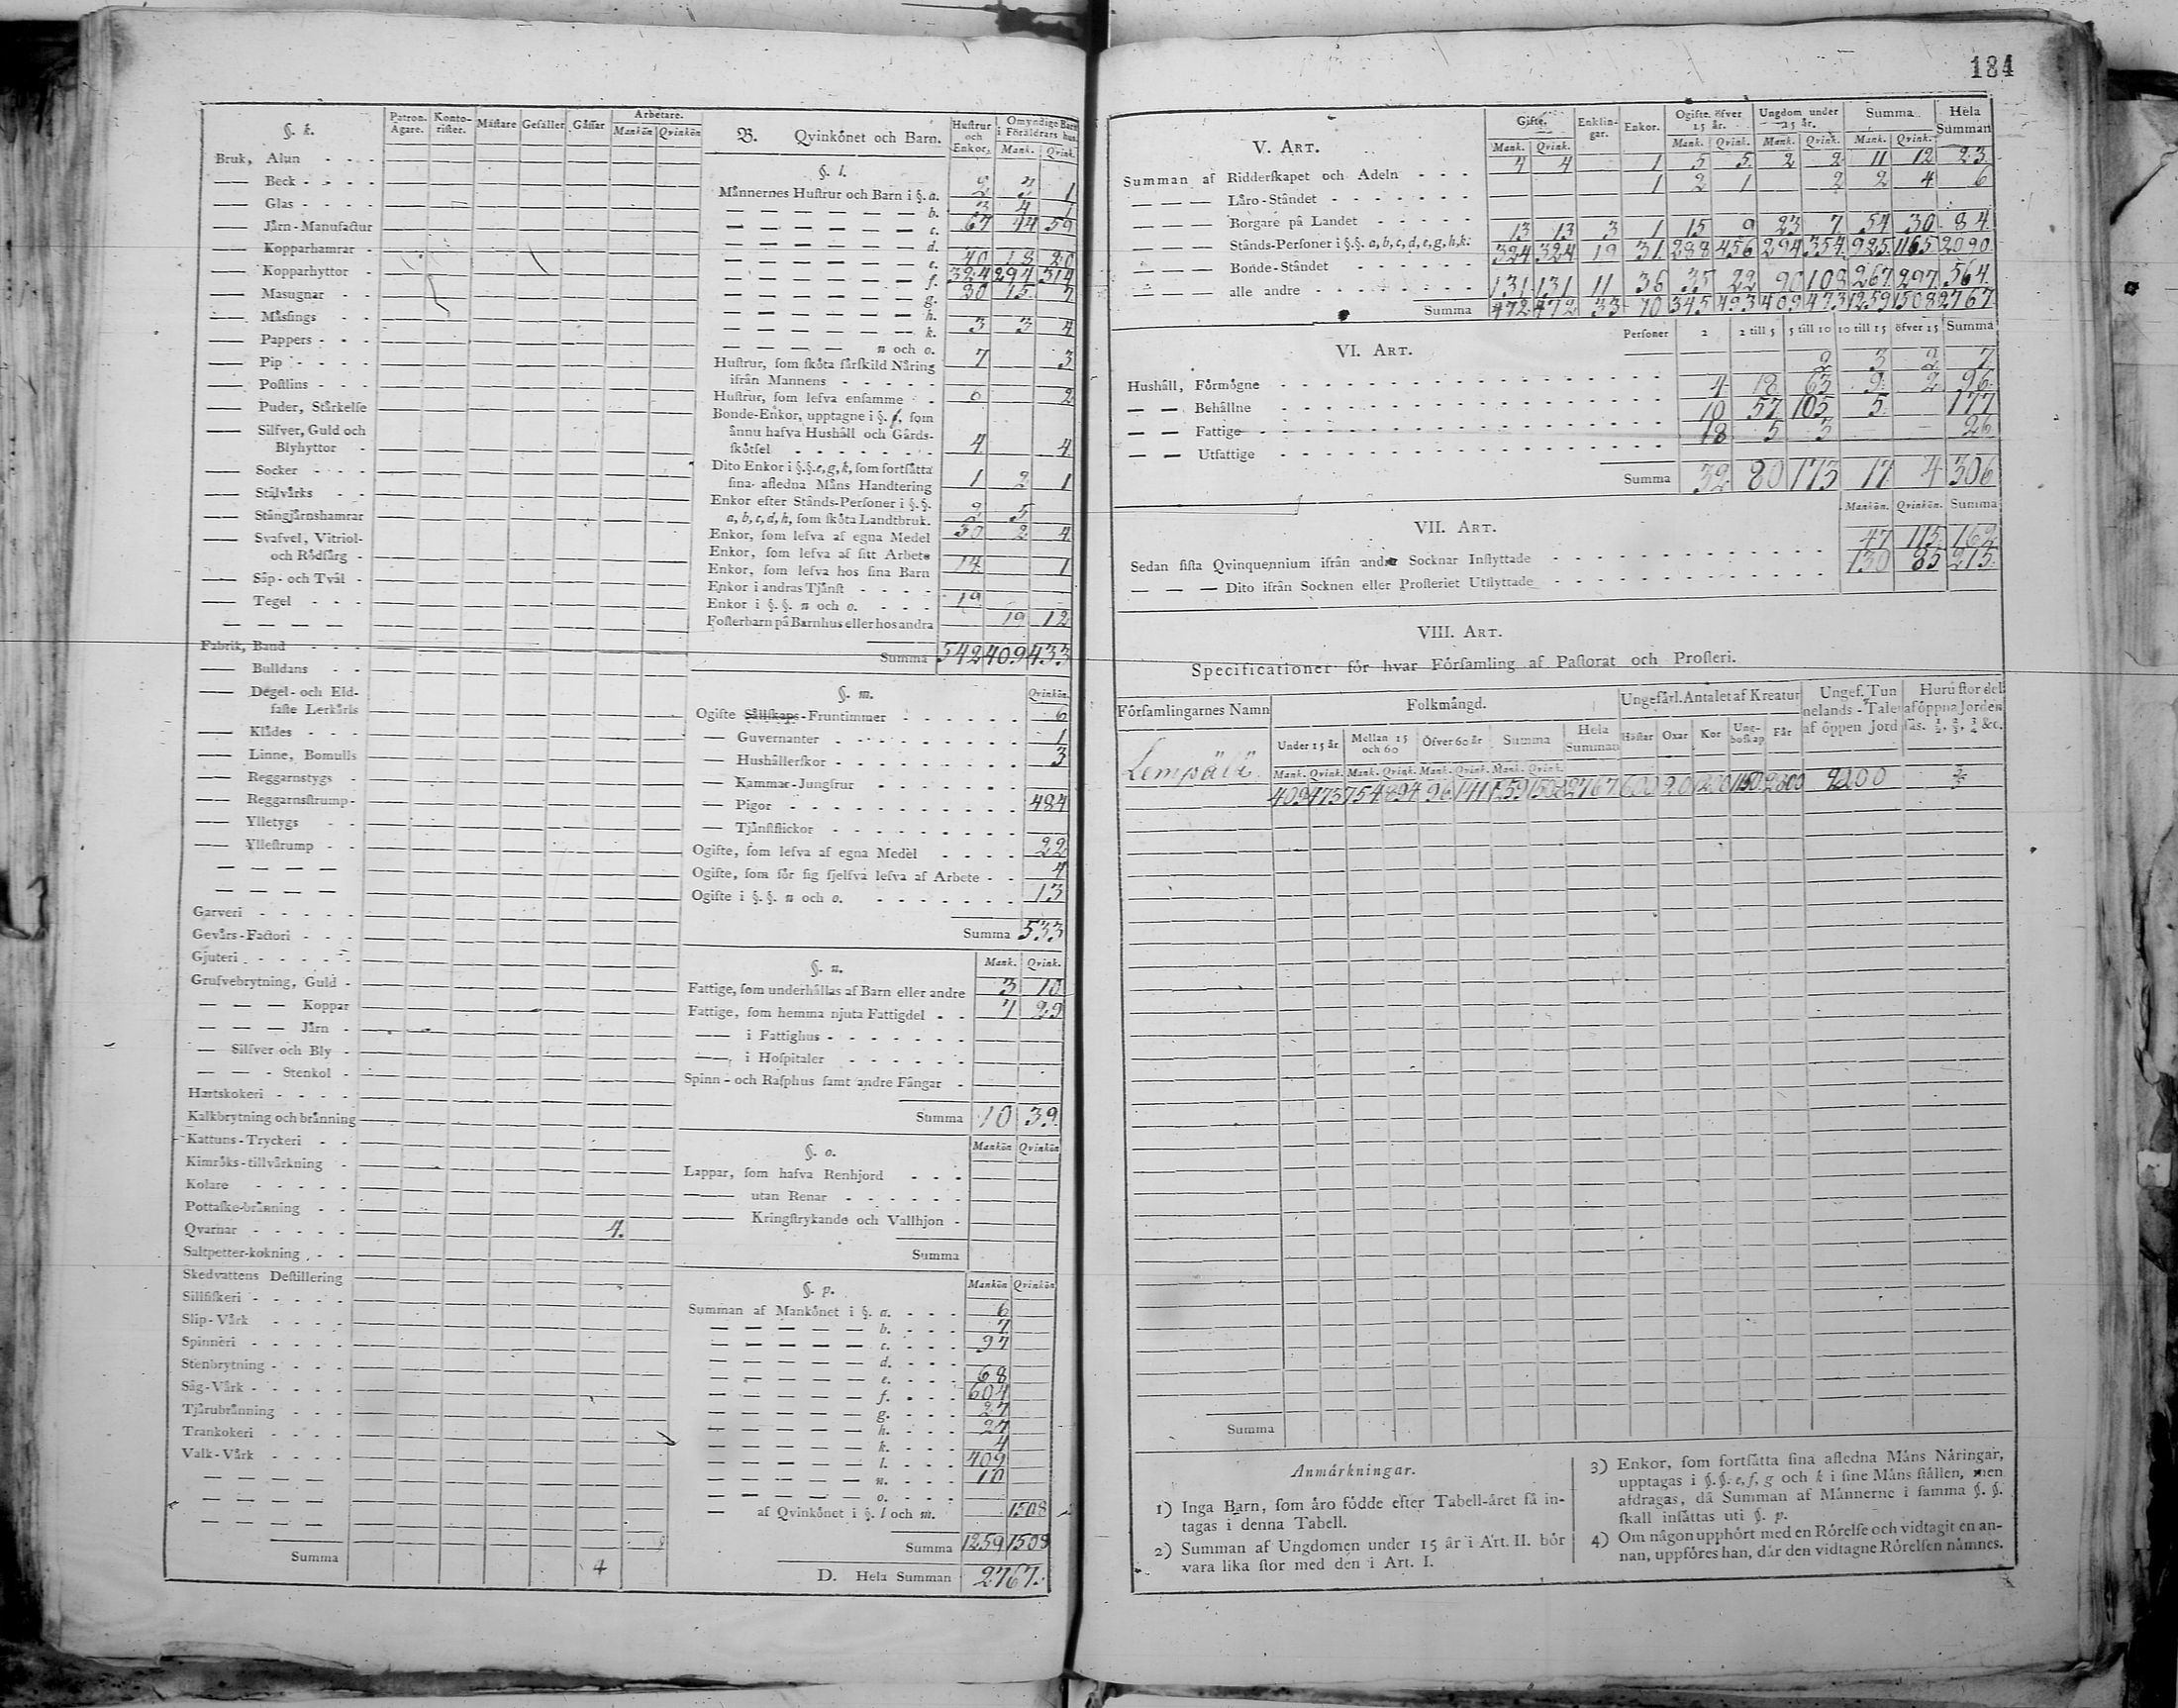 184
§. k.
Patron. Ägare.
Konto-rister.
Mästare
Gesäller
Gåssar
Arbetare.
Mankön Qvinkön
Bruk, Alun
Beck
Glas
Järn-Manufactur
Kopparhamrar
Kopparhyttor
Masugnar
Måsings
Pappers
Pip
Postlins
Puder, Stårkelse
Silfver, Guld och
Blyhyttor
Socker
Stålvårks
Stångjårnshamrar
Svafvel, Vitriol-
och Rödfårg
Såp- och Tvål
Tegel
Fabrik, Band
Bulldans
Degel- och Eld-
faste Lerkårls
Klådes
Linne, Bomulls
Reggarnstygs
Reggarnsstrump-
Ylletygs
Yllestrump
Garveri
Gevårs-Factori
Gjuteri
Grufvebrytning, Guld
Koppar
Järn
Silfver och Bly
Stenkol
Hartskokeri
Kalkbrytning och brånning
Kattuns-Tryckeri
Kimröks-tillvårkning
Kolare
Pottaske-brånning
Qvarnar 4.
Saltpetter-kokning
Skedvattens Destillering
Sillfiskeri
Slip-Vårk
Spinneri
Stenbrytning
Såg-Vårk
Tjårubrånning
Trankokeri
Valk-Vårk
Summa 4
B. Qvinkönet och Barn.
Hustrur och Enkor.
Omyndige Barn i Föräldrars hus.
Mank. Qvink.
§. l.
Männernes Hustrur och Barn i §. a. 1
b. 3 4 1
c. 67 44 59
d.
e. 40 18 20
f. 324 294 314
g. 20 15 7
h.
k. 3 3 4
n och o.
Hustrur, som sköta särskild Näring
ifrån Mannens 7 3
Hustrur, som lefva ensamme 6 2
Bonde-Enkor, upptagne i §. f, som
ånnu hafva Hushåll och Gårds-
skötsel 4 4
Dito Enkor i §.§. e, g, k, som fortsätta
sina afledna Måns Handtering 1 2 1
Enkor efter Stånds-Personer i §.§.
a, b, c, d, h, som sköta Landtbruk. 2 5
Enkor, som lefva af egna Medel 30 2 4
Enkor, som lefva af sitt Arbete
Enkor, som lefva hos sina Barn 14 1
Enkor i andras Tjånst
Enkor i §.§. n och o. 19
Fosterbarn på Barnhus eller hos andra 19 12
Summa 542 409 433
§. m.
Qvinkön.
Ogifte Sällskaps-Fruntimmer 6
Guvernanter 1
Hushållerskor 3
Kammar-Jungfrur
Pigor 484
Tjånstflickor
Ogifte, som lefva af egna Medel 22
Ogifte, som för sig sjelfva lefva af Arbete 4
Ogifte i §.§. n och o. 13
Summa 533
§. n.
Mank. Qvink.
Fattige, som underhållas af Barn eller andre 3 10
Fattige, som hemma njuta Fattigdel 7 29
i Fattighus
i Hospitaler
Spinn- och Rasphus samt andre Fångar
Summa 10 39.
§. o.
Mankön Qvinkön
Lappar, som hafva Renhjord
utan Renar
Kringstrykande och Vallhjon
Summa
§. p.
Mankön Qvinkön
Summan af Mankönet i §. a. 6
b. 7
c. 97
d.
e. 68
f. 604
g. 27
h. 27
k. 4
l. 409
n. 10
o.
af Qvinkönet i §. l och m. 1508
Summa 1259 1508
D. Hela Summan 2767.
V. Art.
Gifte. Mank. Qvink.
Enklin-gar.
Enkor.
Ogifte öfver 15 år. Mank. Qvink.
Ungdom under 15 år. Mank. Qvink.
Summa Mank. Qvink.
Hela Summan
Summan af Ridderskapet och Adeln 4 4 1 5 5 2 2 11 12 23
Läro-Ståndet 1 2 1 2 2 4 6
Borgare på Landet
Stånds-Personer i §.§. a, b, c, d, e, g, h, k. 13 13 3 1 15 9 23 7 54 30 84
Bonde-Ståndet 324 324 19 31 288 456 294 354 925 1165 2090
alle andre 131 131 11 36 35 22 90 108 267 297 564
Summa 472 472 33 70 345 493 409 473 1259 1508 2767
VI. Art.
Personer 2 2 till 5 5 till 10 10 till 15 öfver 15 Summa
Hushåll, Förmögne 2 3 2 7
Behållne 4 18 63 9 2 96
Fattige 10 57 105 5 177
Utfattige 18 5 3 26
Summa 32 80 173 17 4 306
VII. Art.
Mankön. Qvinkön. Summa
Sedan sista Qvinquennium ifrån andre Socknar Inflyttade 47 115 162
Dito ifrån Socknen eller Prosteriet Utflyttade 130 85 215
VIII. Art.
Specificationer för hvar Församling af Pastorat och Prosteri.
Församlingarnes Namn
Folkmängd.
Under 15 år Mellan 15 och 60 Öfver 60 år Summa Hela Summan
Mank. Qvink. Mank. Qvink. Mank. Qvink. Mank. Qvink.
Ungefärl. Antalet af Kreatur
Hästar Oxar Kor Ung-boskap Får
Ungef. Tun nelands-Talet af öppen Jord
Huru stor del af öppna Jorden
Lempälä 409 473 754 894 96 141 1259 1508 2767 600
Summa
Anmärkningar.
1) Inga Barn, som äro födde efter Tabell-året få in-
tagas i denna Tabell.
2) Summan af Ungdomen under 15 år i Art. II. bör
vara lika stor med den i Art. I.
3) Enkor, som fortsätta sina afledna Måns Näringar,
upptagas i §.§. e, f, g och k i sine Måns ställen, men
afdragas, då Summan af Männerne i samma §. §.
skall insättas uti §. p.
4) Om någon upphört med en Rörelse och vidtagit en an-
nan, uppföres han, där den vidtagne Rörelsen nämnes.